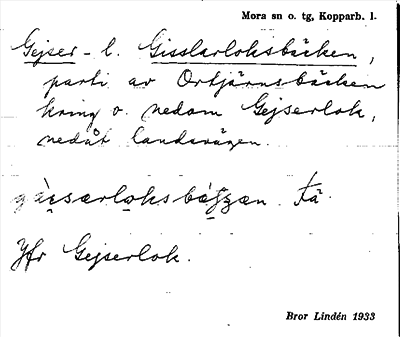 Mora sn o. tg, Kopparb. l.
Gejser- l. Gisslarloksbäcken,
parti av Ortjärnsbäcken
kring o. nedom Gejserlok,
nedåt landsvägen.
Fä.
Jfr Gejserlok.
Bror Lindén 1933